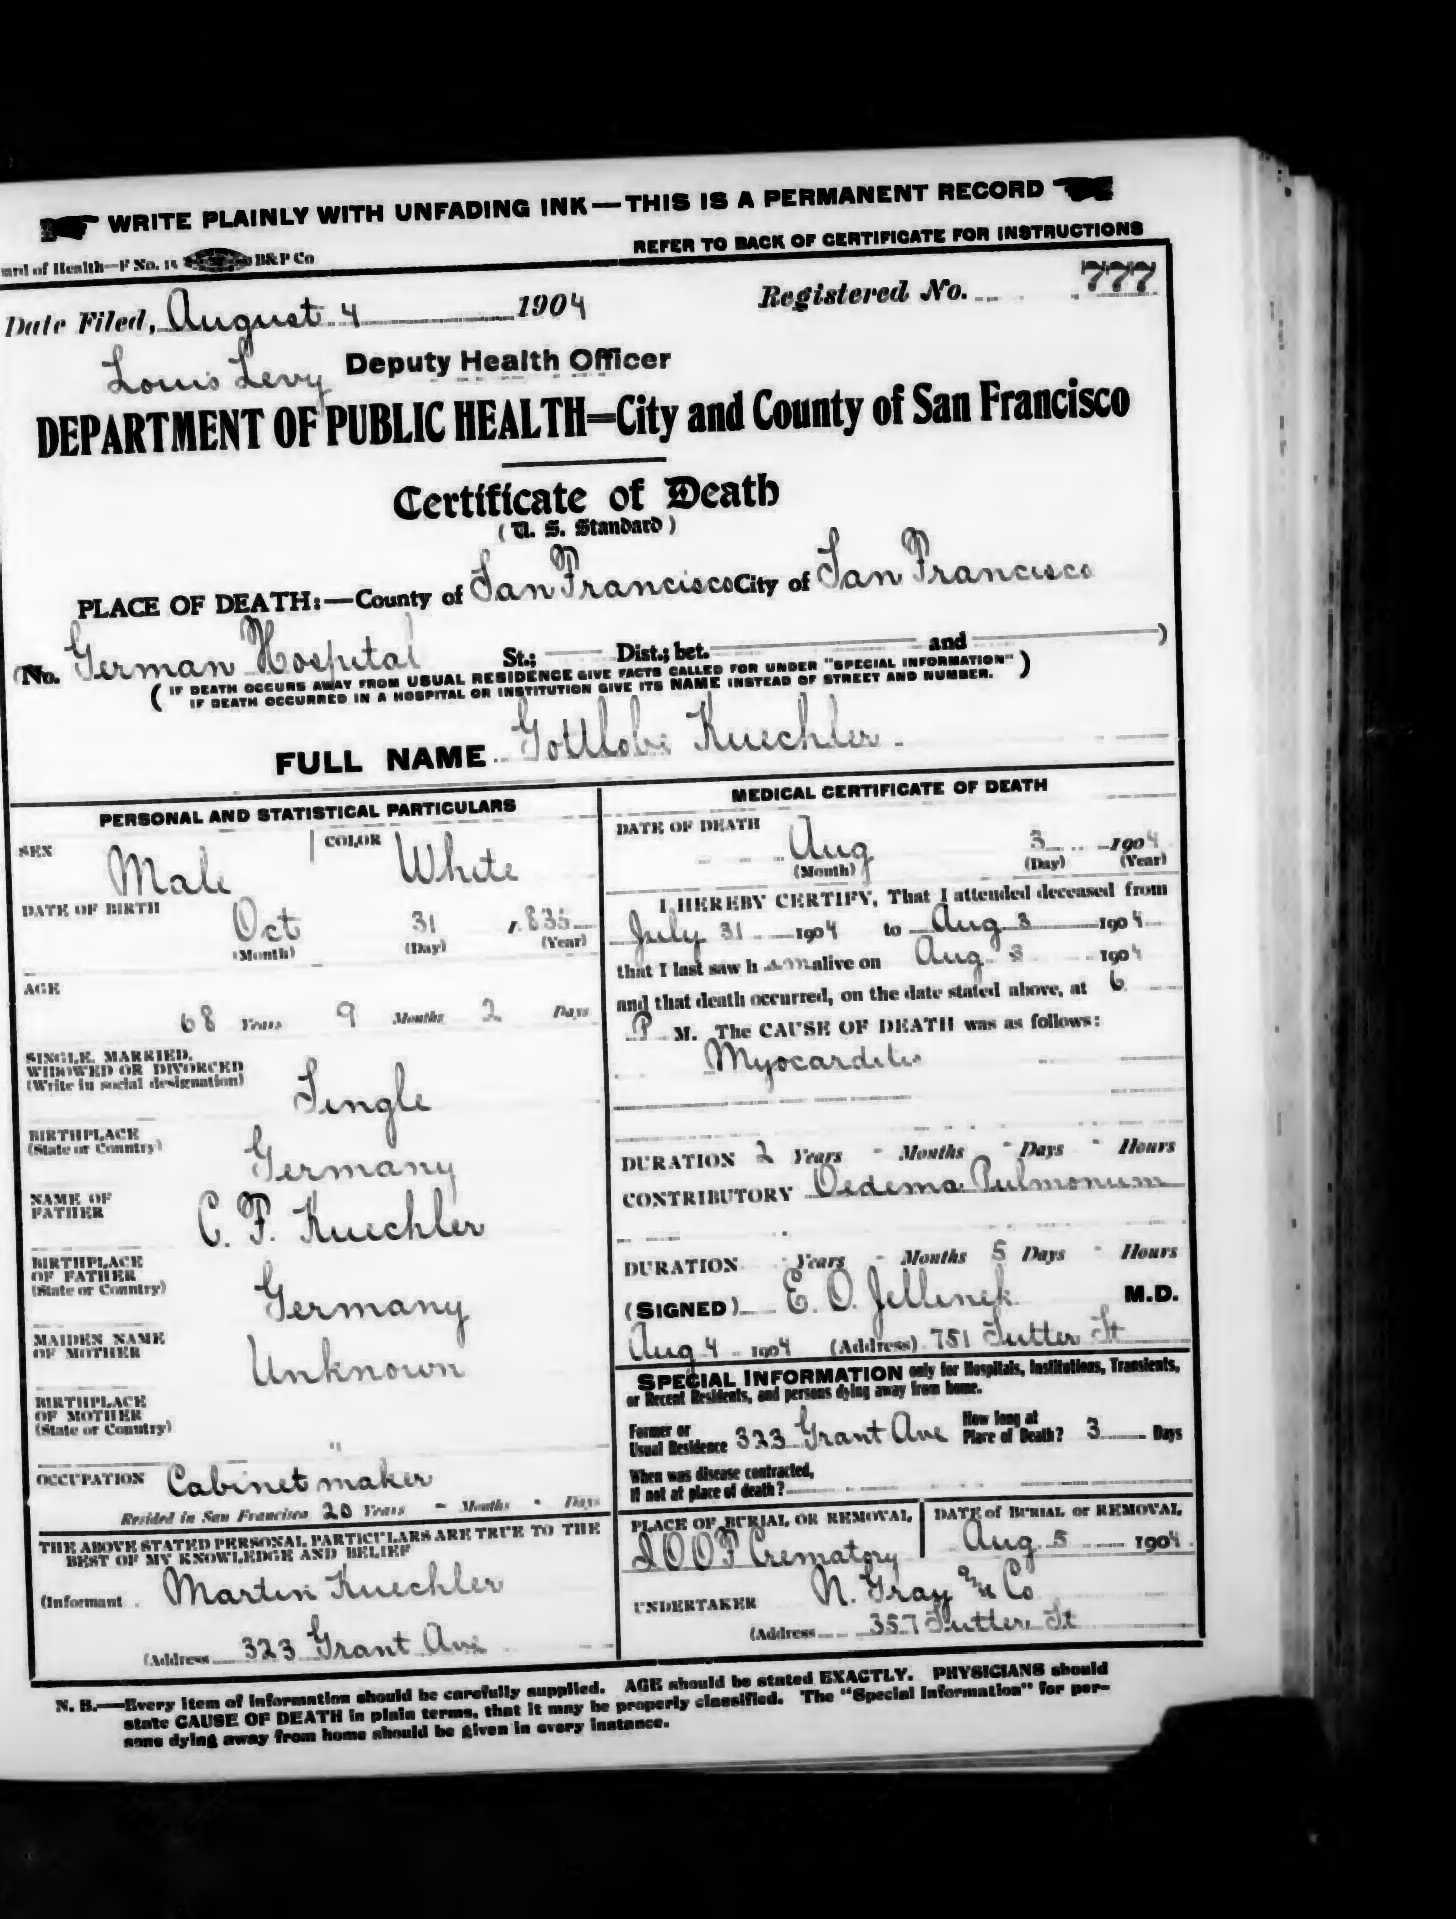 WRITE PLAINLY WITH UNFADING INK—THIS IS A PERMANENT RECORD
REFER TO BACK OF CERTIFICATE FOR INSTRUCTIONS
ard of Health—F No. 15 B&P Co
Date Filed, August 4 1904 Registered No. 777
Louis Levy Deputy Health Officer
DEPARTMENT OF PUBLIC HEALTH=City and County of San Francisco
Certificate of Death
(U. S. Standard)
PLACE OF DEATH:—County of San Francisco City of San Francisco
(No. German Hospital St.; Dist.; bet. and )
( IF DEATH OCCURS AWAY FROM USUAL RESIDENCE GIVE FACTS CALLED FOR UNDER "SPECIAL INFORMATION" )
IF DEATH OCCURRED IN A HOSPITAL OR INSTITUTION GIVE ITS NAME INSTEAD OF STREET AND NUMBER.
FULL NAME Gottlob Kuechler
PERSONAL AND STATISTICAL PARTICULARS
SEX Male COLOR White
DATE OF BIRTH Oct 31 1835
(Month) (Day) (Year)
AGE
68 Years 9 Months 2 Days
SINGLE, MARRIED,
WIDOWED OR DIVORCED
(Write in social designation) Single
BIRTHPLACE
(State or Country) Germany
NAME OF
FATHER C. F. Kuechler
BIRTHPLACE
OF FATHER
(State or Country) Germany
MAIDEN NAME
OF MOTHER Unknown
BIRTHPLACE
OF MOTHER
(State or Country)
"
OCCUPATION Cabinet maker
Resided in San Francisco 20 Years - Months - Days
THE ABOVE STATED PERSONAL PARTICULARS ARE TRUE TO THE
BEST OF MY KNOWLEDGE AND BELIEF
(Informant Martin Kuechler
(Address 323 Grant Ave
MEDICAL CERTIFICATE OF DEATH
DATE OF DEATH Aug 3 1904
(Month) (Day) (Year)
I HEREBY CERTIFY, That I attended deceased from
July 31 1904 to Aug 3 1904
that I last saw h im alive on Aug 3 1904
and that death occurred, on the date stated above, at 6
P M. The CAUSE OF DEATH was as follows:
Myocarditis
DURATION 2 Years - Months - Days - Hours
CONTRIBUTORY Oedema Pulmonum
DURATION - Years - Months 5 Days - Hours
(SIGNED) E. O. Jellinek M.D.
Aug 4 1904 (Address) 751 Sutter St
SPECIAL INFORMATION only for Hospitals, Institutions, Transients,
or Recent Residents, and persons dying away from home.
Former or
Usual Residence 323 Grant Ave How long at
Place of Death? 3 Days
When was disease contracted,
If not at place of death?
PLACE OF BURIAL OR REMOVAL DATE of BURIAL or REMOVAL
I O O F Crematory Aug 5 1904
UNDERTAKER N. Gray & Co
(Address 357 Sutter St
N. B.—Every item of information should be carefully supplied. AGE should be stated EXACTLY. PHYSICIANS should
state CAUSE OF DEATH in plain terms, that it may be properly classified. The "Special Information" for per-
sons dying away from home should be given in every instance.